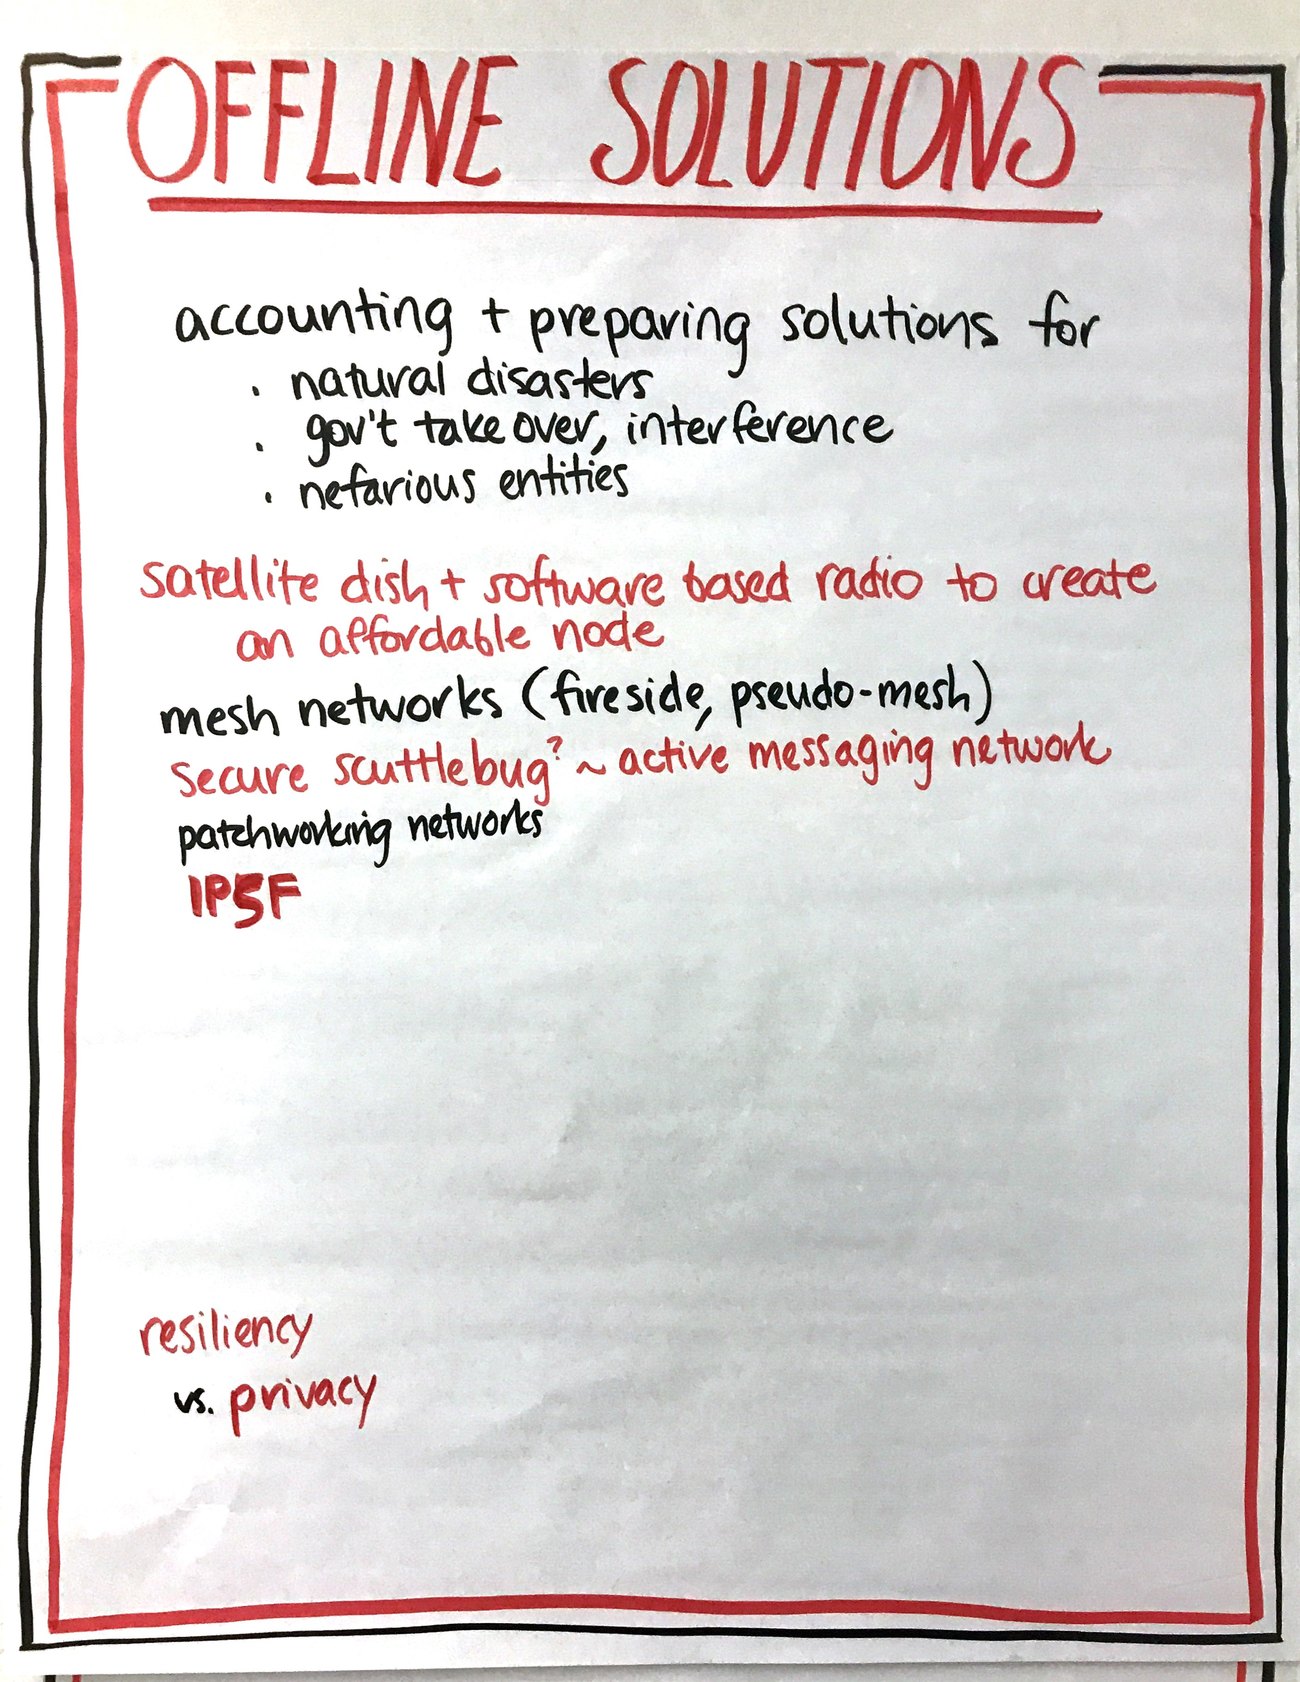 OFFLINE SOLUTIONS
accounting + preparing solutions for
· natural disasters
· gov't take over, interference
· nefarious entities
satellite dish + software based radio to create
an affordable node
mesh networks (fireside, pseudo-mesh)
secure scuttlebug? ~ active messaging network
patchworking networks
IP5F
resiliency
vs. privacy